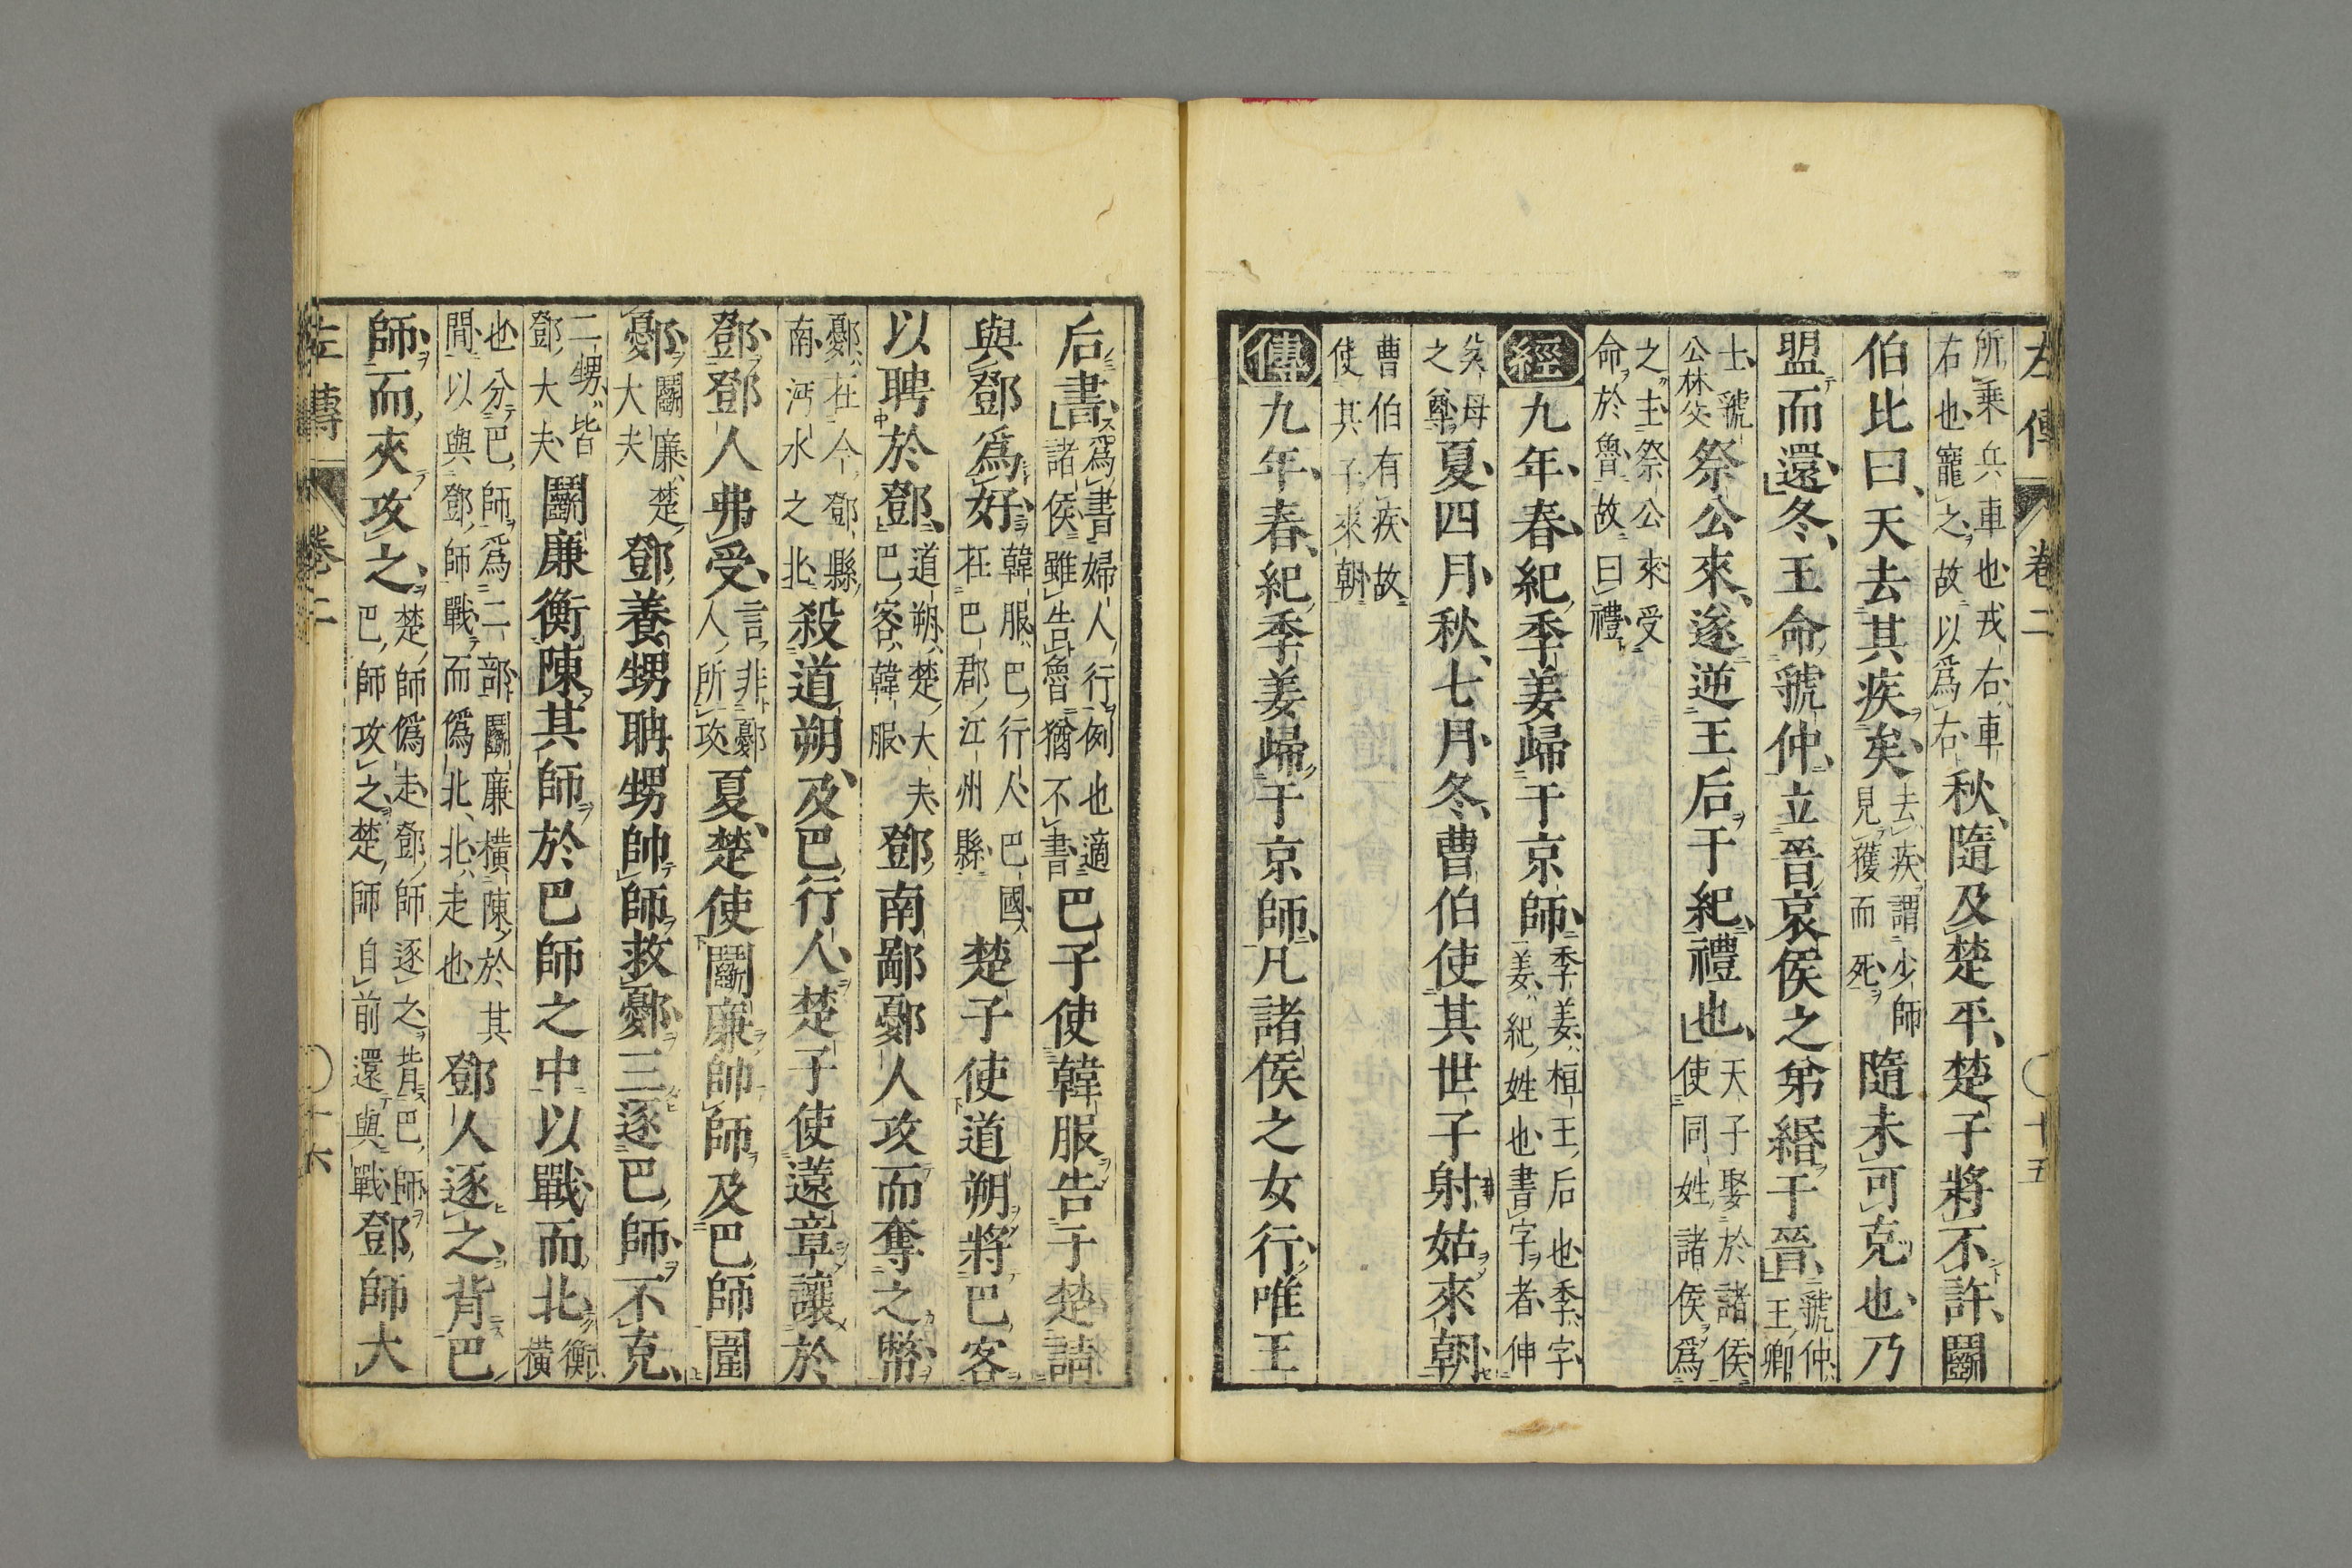 左傳 卷二 十五
所乘兵車也戎右車
右也寵之故以爲右秋隨及楚平楚子將不許鬭
伯比曰天去其疾矣去疾謂少師
見獲而死隨未可克也乃
盟而還冬王命虢仲立晉哀侯之弟緡于晉虢仲
王卿
士虢
公林父祭公來遂逆王后于紀禮也天子娶於諸侯
使同姓諸侯爲
之主祭公來受
命於魯故曰禮
經九年春紀季姜歸于京師季姜桓王后也季字
姜紀姓也書字者伸
父母
之尊夏四月秋七月冬曹伯使其世子射姑來朝
曹伯有疾故
使其子來朝
傳九年春紀季姜歸于京師凡諸侯之女行唯王
后書爲書婦人行例也適
諸侯雖告魯猶不書巴子使韓服告于楚請
與鄧爲好韓服巴行人巴國
在巴郡江州縣楚子使道朔將巴客
以聘於鄧道朔楚大夫
巴客韓服鄧南鄙鄾人攻而奪之幣
鄾在今鄧縣
南沔水之北殺道朔及巴行人楚子使薳章讓於
鄧鄧人弗受言非鄾
人所攻夏楚使鬭廉帥師及巴師圍
鄾鬭廉楚
大夫鄧養甥聃甥帥師救鄾三逐巴師不克
二甥皆
鄧大夫鬭廉衡陳其師於巴師之中以戰而北衡
橫
也分巴師爲二部鬭廉橫陳於其
間以與鄧師戰而僞北北走也鄧人逐之背巴
師而夾攻之楚師僞走鄧師逐之背巴師
巴師攻之楚師自前還與戰鄧師大
左傳 卷二 十六